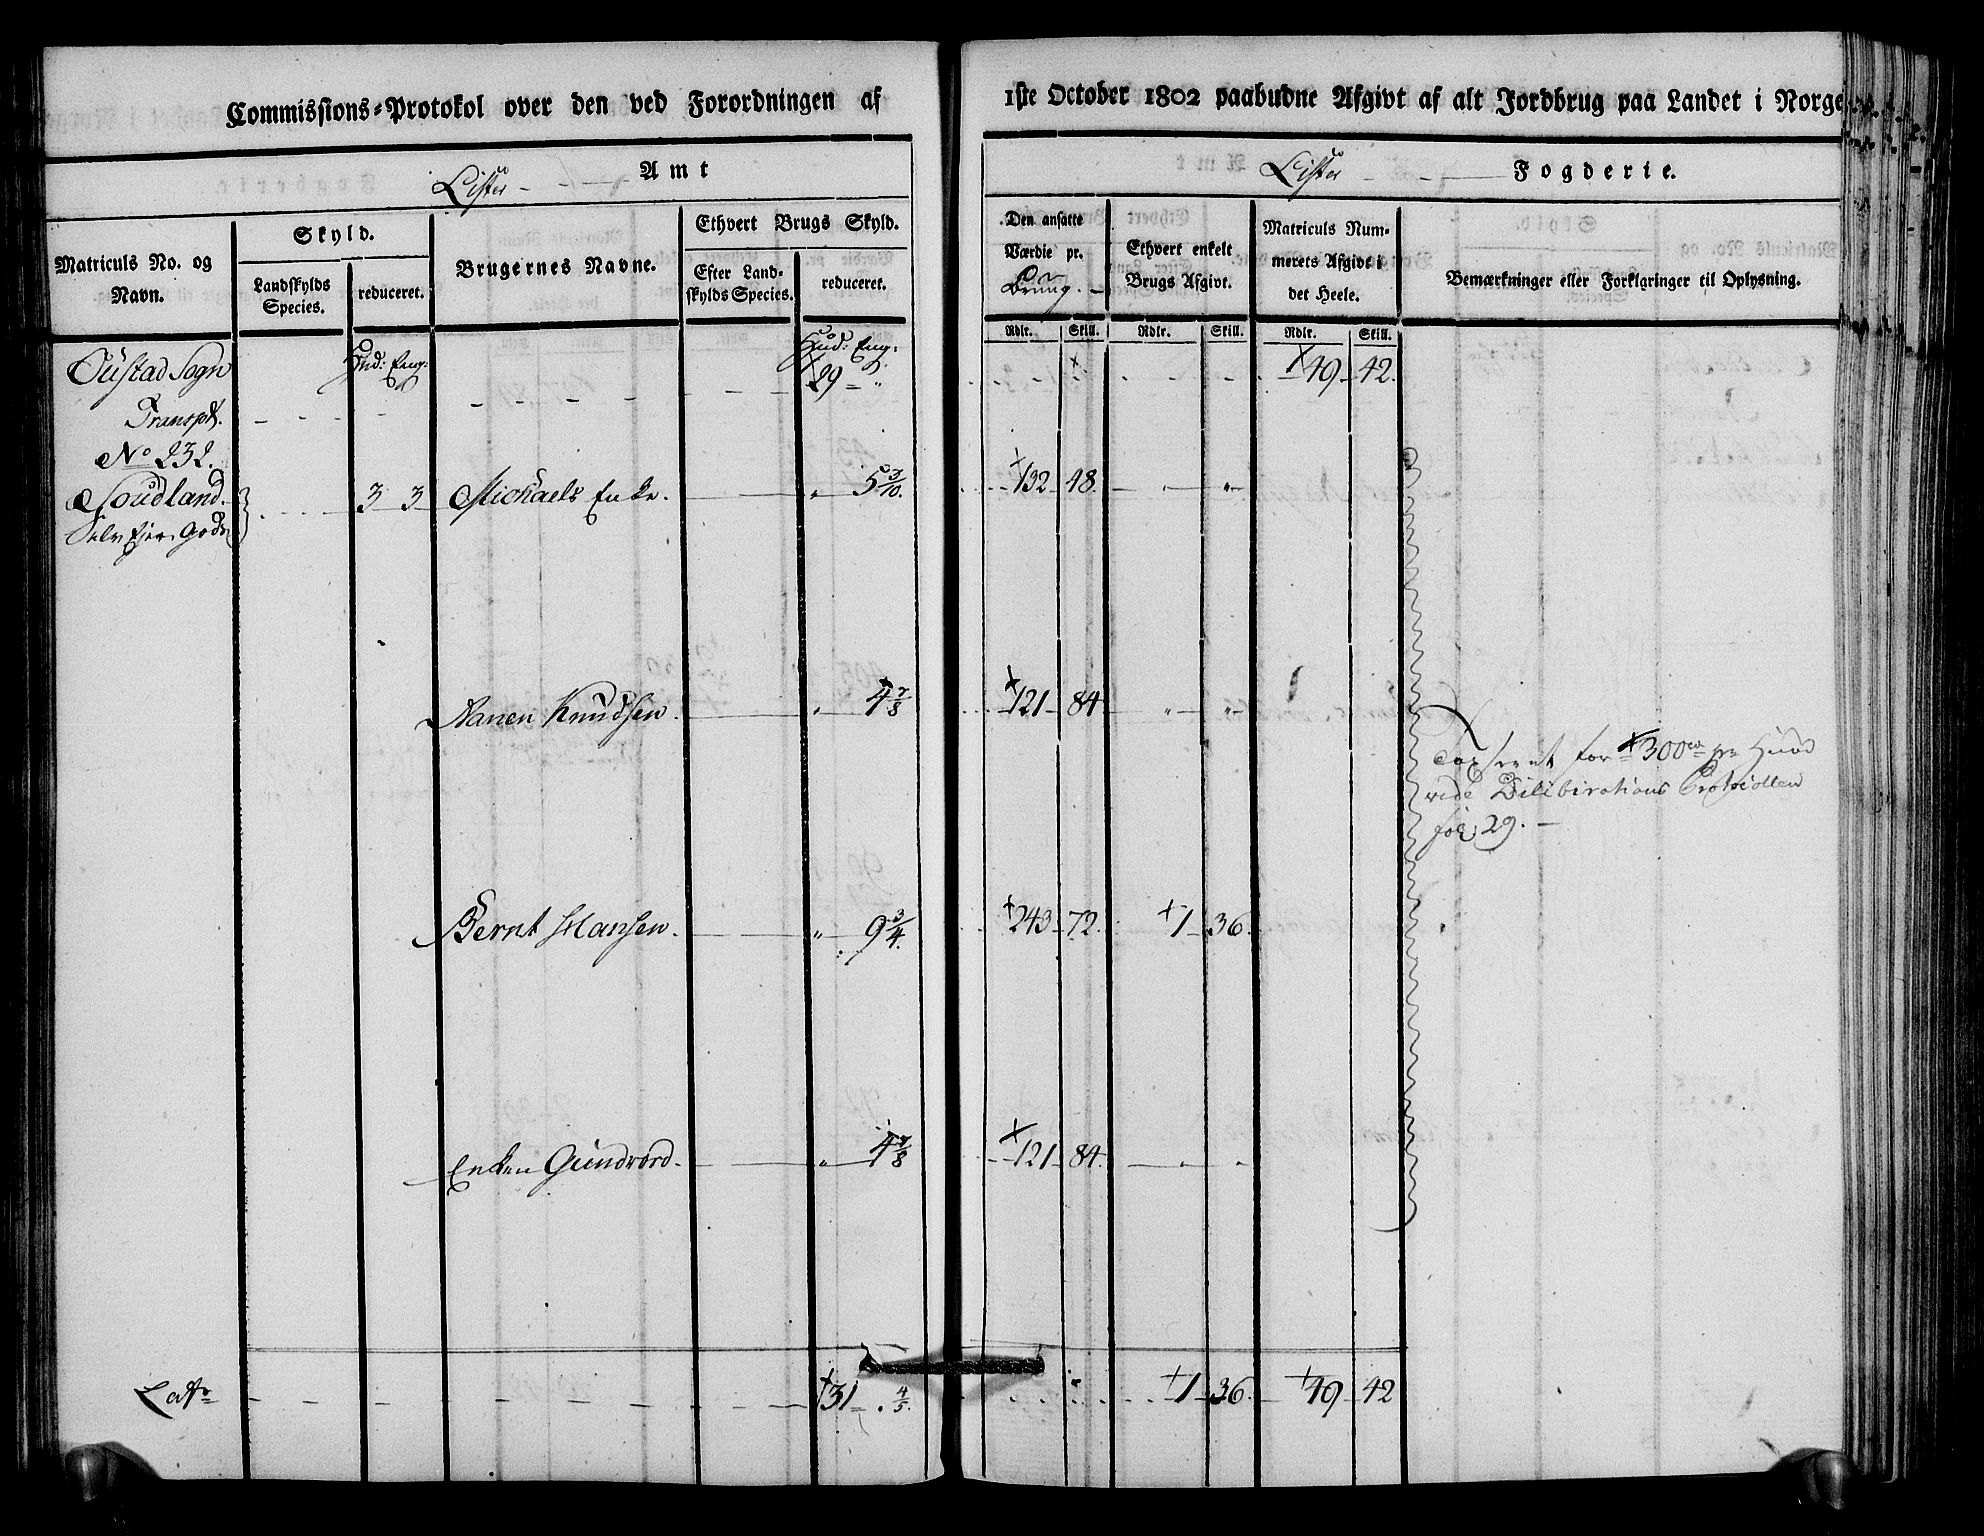 Commissions-Protokol over den ved Forordningen af 1ste October 1802 paabudne Afgivt af alt Jordbrug paa Landet i Norge
Lister Amt
Lister Fogderie.
Matriculs No. og Navn.
Skyld.
Landskylds Species.
reduceret.
Brugernes Navne.
Ethvert Brugs Skyld.
Efter Landskylds Species.
reduceret.
Den ansatte Værdie pr. Brug.
Ethvert enkelt Brugs Afgivt.
Matriculs Nummerets Afgivt i det Heele.
Bemærkninger eller Forklaringer til Oplysning.
Rdlr. Skill. Rdlr. Skill. Rdlr. Skill.
Hud: Eng: Hud: Eng:
Oustad Sogn
Transpt. 29 " 49 42.
No 232.
Soudland. 3 3 Michaels Enke. " 5 3/10. 132 48. " "
Selv Ejer Gods
Nanen Knudsen " 4 7/8 121 84 " "
Taxseret for 300 rd pr Huud
vide Dilibirations Protocollen
fol: 29.
Bernt Hansen. " 9 3/4. 243 72. 1 36.
Enken Gundvord. " 4 7/8 121 84. " "
Lats 31 4/5. 1 36. 49 42